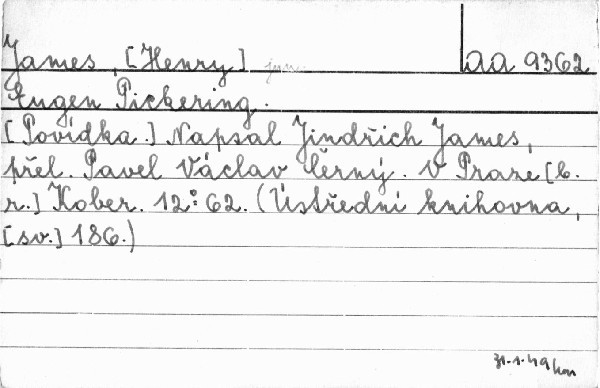 James, [Henry] jun. aa 9362
Eugen Pickering.
[Povídka.] Napsal Jindřich James,
přel. Pavel Václav Černý. V Praze [b.
r.] Kober. 12°. 62. (Ústřední knihovna,
[sv.] 186.)
31.1.49